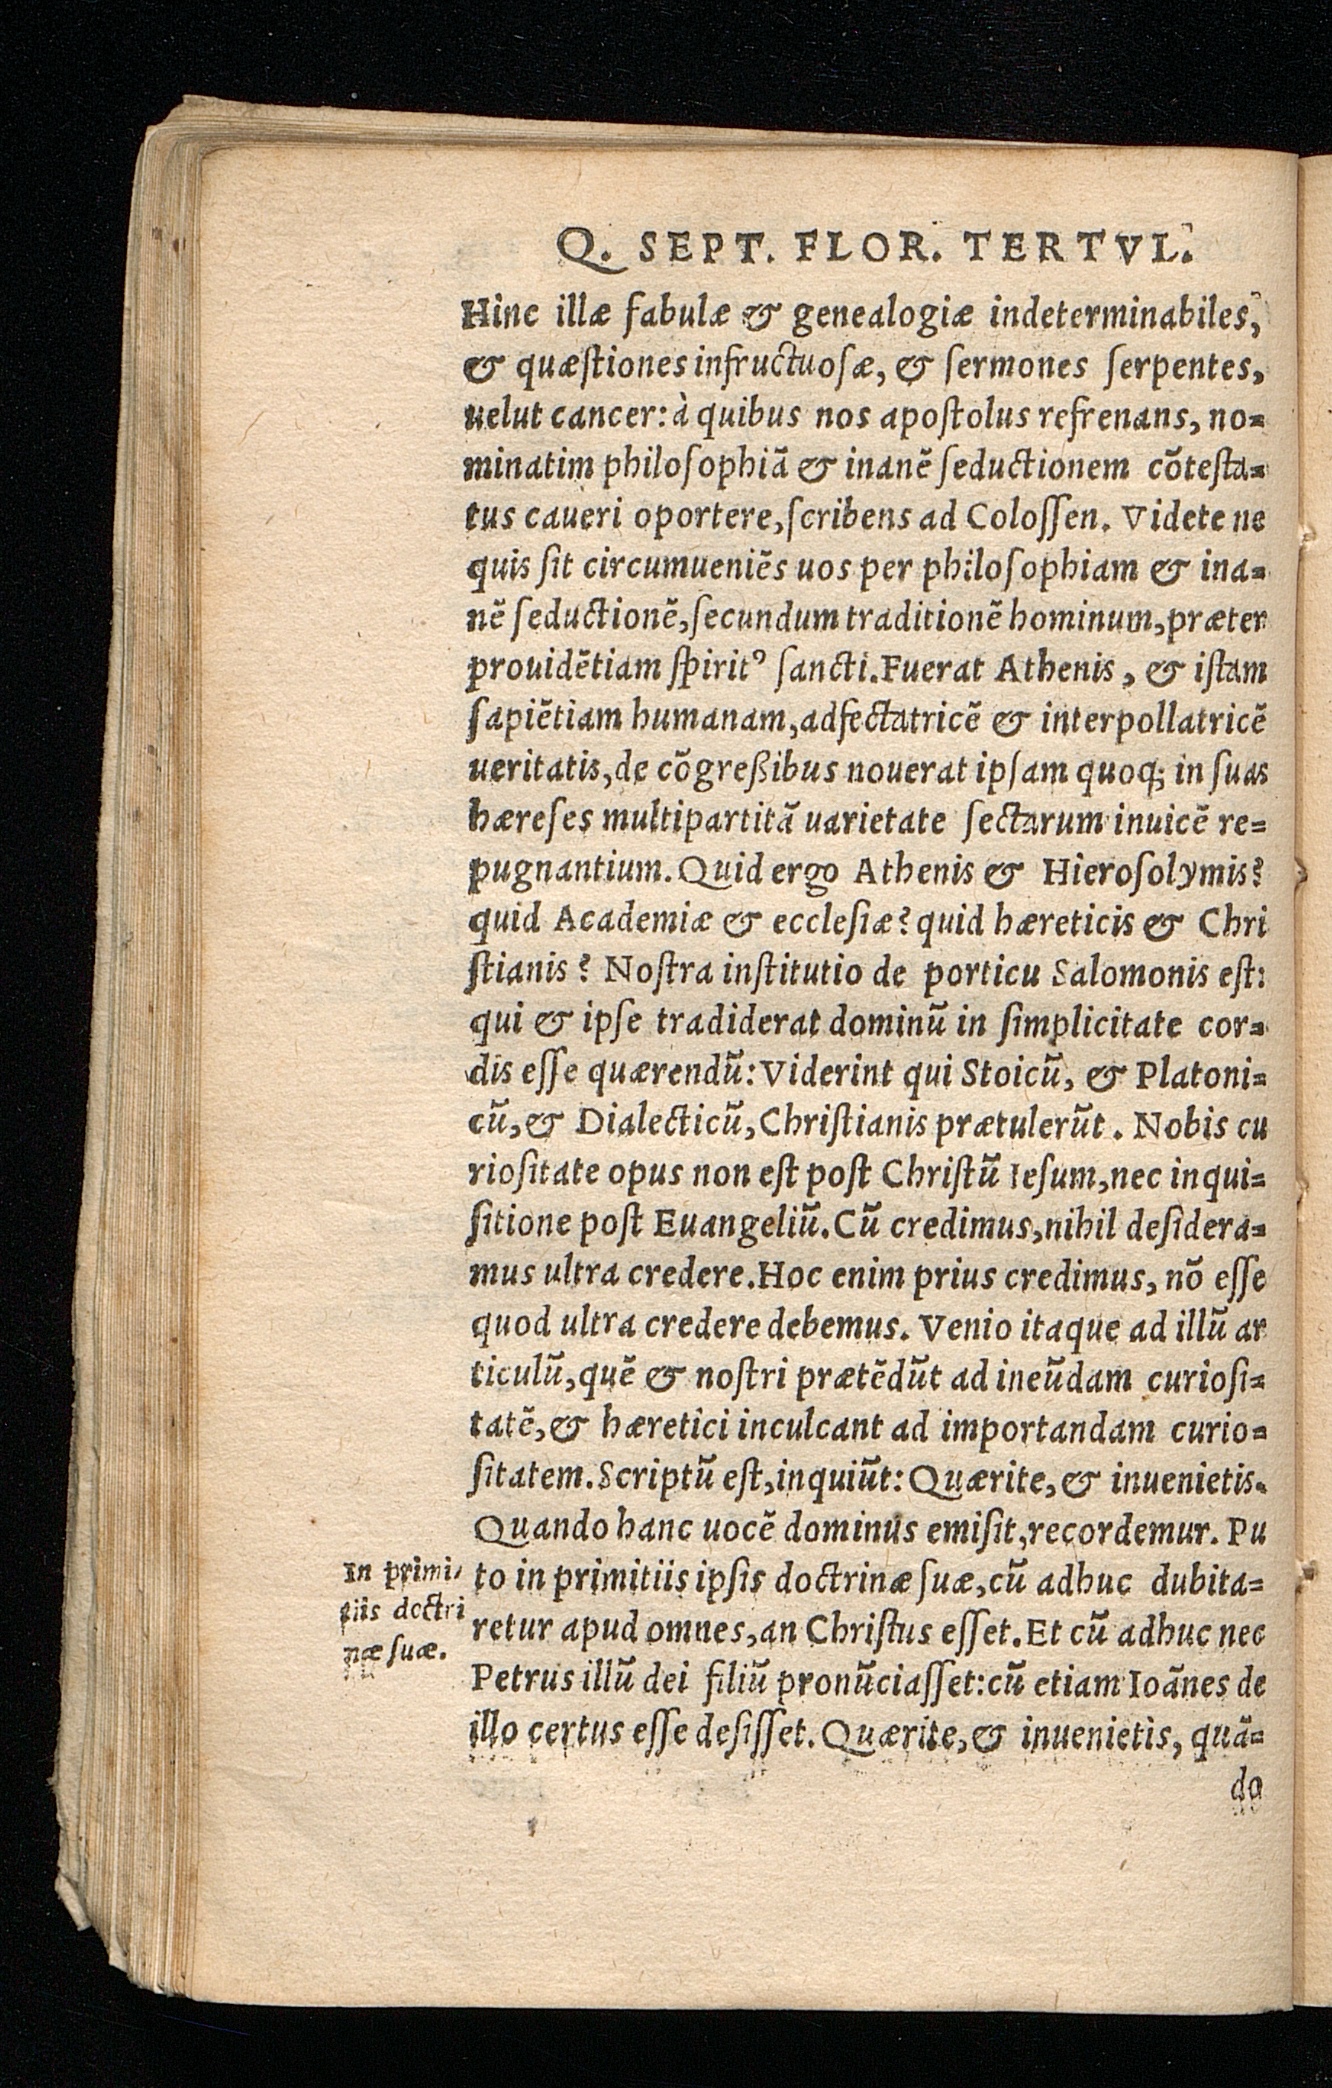 Q. SEPT. FLOR. TERTVL.
Hinc illæ fabulæ & genealogiæ indeterminabiles,
& quæſtiones infructuoſæ, & ſermones ſerpentes,
uelut cancer: à quibus nos apoſtolus refrenans, no=
minatim philoſophiã & inanẽ ſeductionem cõteſta=
tus caueri oportere, ſcribens ad Coloſſen. Videte ne
quis ſit circumueniẽs uos per philoſophiam & ina=
nẽ ſeductionẽ, ſecundum traditionẽ hominum, præter
prouidẽtiam ſpirit⁹ ſancti. Fuerat Athenis, & iſtam
ſapiẽtiam humanam, adfectatricẽ & interpollatricẽ
ueritatis, de cõgreßibus nouerat ipſam quoq; in ſuas
hæreſes multipartitã uarietate ſectarum inuicẽ re=
pugnantium. Quid ergo Athenis & Hieroſolymis?
quid Academiæ & eccleſiæ? quid hæreticis & Chri
ſtianis? Noſtra inſtitutio de porticu Salomonis eſt:
qui & ipſe tradiderat dominũ in ſimplicitate cor=
dis eſſe quærendũ: Viderint qui Stoicũ, & Platoni=
cũ, & Dialecticũ, Chriſtianis prætulerũt. Nobis cu
rioſitate opus non eſt poſt Chriſtũ Ieſum, nec inqui=
ſitione poſt Euangeliũ. Cũ credimus, nihil deſidera=
mus ultra credere. Hoc enim prius credimus, nõ eſſe
quod ultra credere debemus. Venio itaque ad illũ ar
ticulũ, quẽ & noſtri prætẽdũt ad ineũdam curioſi=
tatẽ, & hæretici inculcant ad importandam curio=
ſitatem. Scriptũ eſt, inquiũt: Quærite, & inuenietis.
Quando hanc uocẽ dominus emiſit, recordemur. Pu
to in primitiis ipſis doctrinæ ſuæ, cũ adhuc dubita=
retur apud omnes, an Chriſtus eſſet. Et cũ adhuc nec
Petrus illũ dei filiũ pronũciaſſet: cũ etiam Ioãnes de
illo certus eſſe deſiſſet. Quærite, & inuenietis, quã=
do
In primi/
tiis doctri
næ ſuæ.